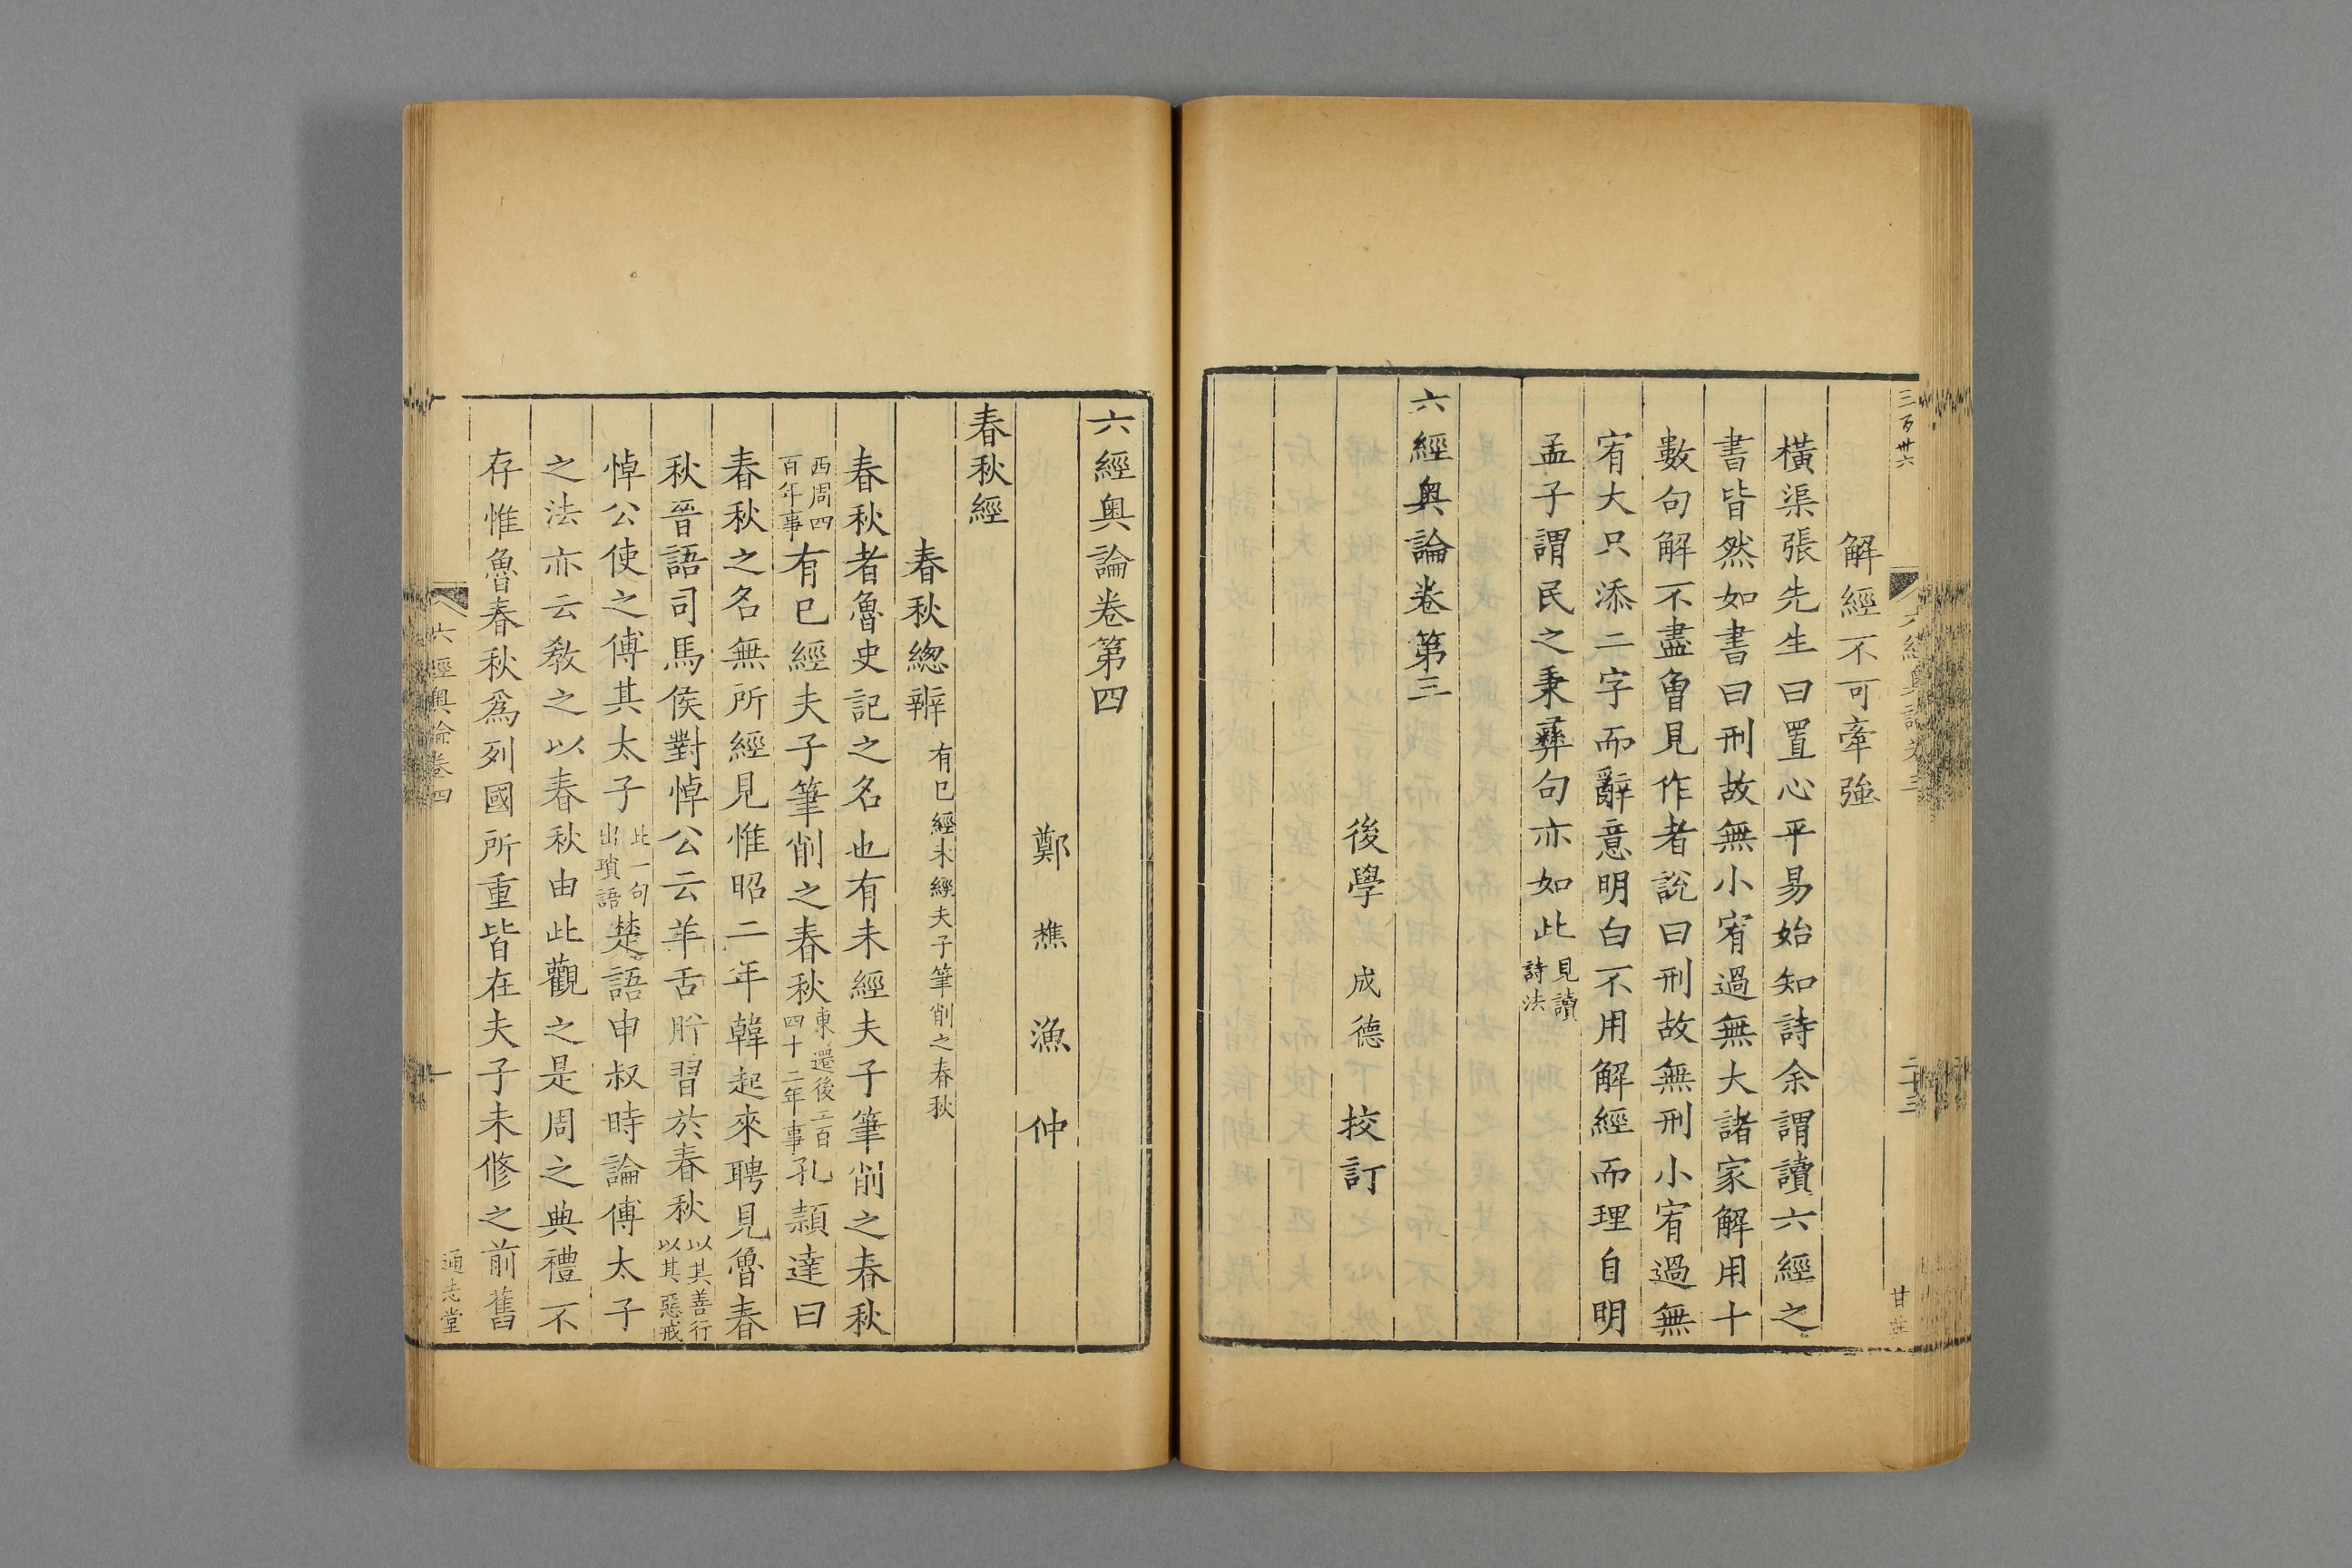 三百卅六
六經奥論卷三
二十三
甘
解經不可牽強
橫渠張先生曰置心平易始知詩余謂讀六經之
書皆然如書曰刑故無小宥過無大諸家解用十
數句解不盡曾見作者說曰刑故無刑小宥過無
宥大只添二字而辭意明白不用解經而理自明
孟子謂民之秉彞句亦如此見讀詩法
六經奥論卷第三
後學 成德 挍訂
六經奥論卷第四
鄭樵漁仲
春秋經
春秋緫辨有已經未經夫子筆削之春秋
春秋者魯史記之名也有未經夫子筆削之春秋
西周四百年事有已經夫子筆削之春秋東遷後二百四十二年事孔頴達曰
春秋之名無所經見惟昭二年韓起來聘見魯春
秋晉語司馬侯對悼公云羊舌肸習於春秋以其善行以其惡戒
悼公使之傅其太子此一句出瑣語楚語申叔時論傅太子
之法亦云敎之以春秋由此觀之是周之典禮不
存惟魯春秋爲列國所重皆在夫子未修之前舊
六經奥論卷四
一
通志堂